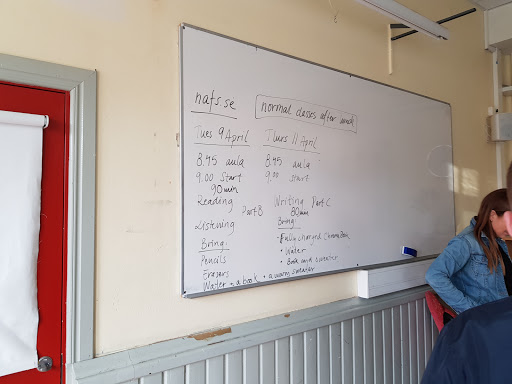 nafs.se
normal classes after
Tues 9 April
8.45 aula
9.00 Start
90 min
Reading
Part B
Listening
Bring:
Pencils
Erasers
Water • a book • a warm sweater
Thurs 11 April
8.45 aula
9.00 start
Writing Part C
80 min
Bring:
- Fully charged ChromeBook
• Water
• Book and sweater